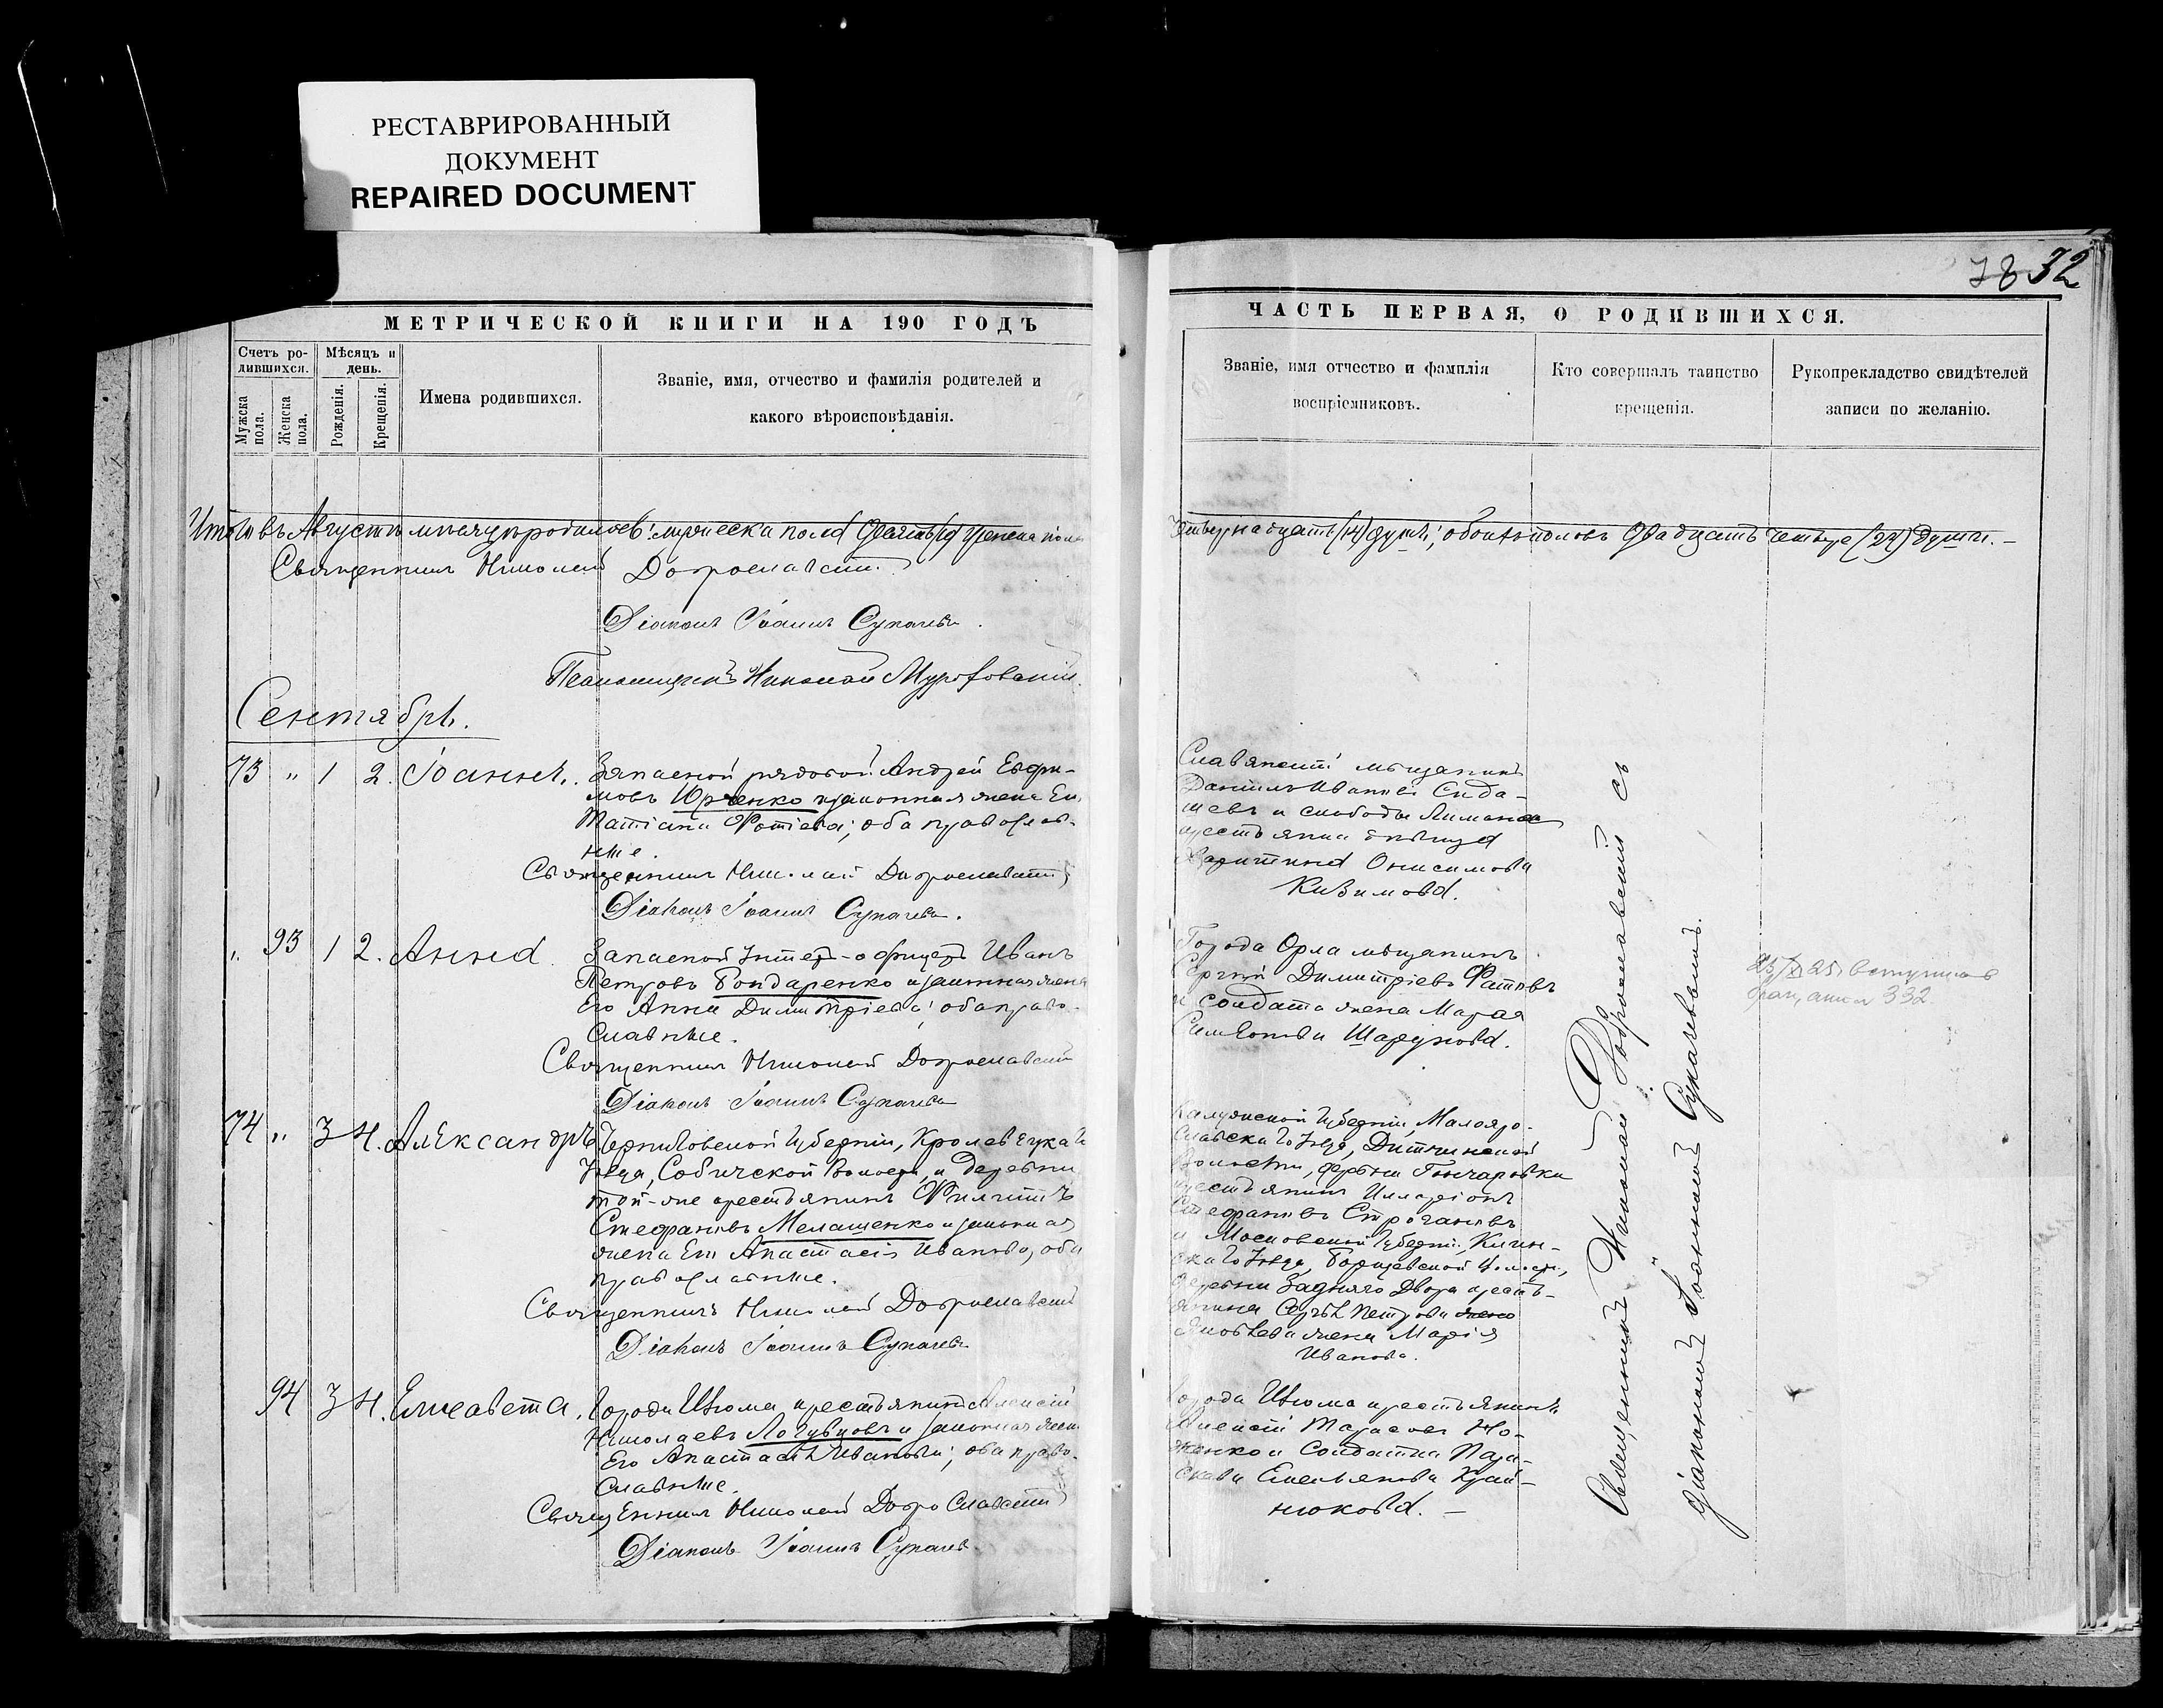 РЕСТАВРИРОВАННЫЙ
ДОКУМЕНТ
REPAIRED DOCUMENT
78 32
МЕТРИЧЕСКОЙ КНИГИ НА 190 ГОДЪ
Счетъ ро-
дившихся.
Мѣсяцъ и
день.
Мужска
пола.
Женска
пола.
Рожденія.
Крещенія.
Имена родившихся.
Званіе, имя, отчество и фамилія родителей и
какого вѣроисповѣданія.
Итого въ Августѣ мѣсяцѣ родилось: мужеска пола женска пола
Священникъ Николай Доброславскій
Діаконъ Іоаннъ Сукачевъ.
Псаломщикъ Николай
Сентябрь.
73 " 1 2. Іоаннъ.
Запасной рядовой Андрей Ефи-
мовъ Юрченко и законная жена Его
Татіана Фотіева; оба православ-
ные.
Священникъ Николай Доброславскій
Діаконъ Іоаннъ Сукачевъ.
" 93 1 2. Анна.
Запасной Унтеръ-офицеръ Иванъ
Петровъ Бондаренко и законная жена
Его Анна Димитріева; оба право-
славные.
Священникъ Николай Доброславскій
Діаконъ Іоаннъ Сукачевъ
74 " 3 4. Александръ
Черниговской Губерніи, Кролевецкаго
Уѣзда, Собичской Волости, и деревни
той-же крестьянинъ Филиппъ
Стефановъ Мелашенко и законная
жена Его Анастасія Иванова, оба
православные.
Священникъ Николай Доброславскій
Діаконъ Іоаннъ Сукачевъ
94 3 4. Елисавета.
Города Изюма крестьянинъ Алексій
Николаевъ и законная жена
Его Анастасія Иванова; оба право-
славные.
Священникъ Николай Доброславскій
Діаконъ Іоаннъ Сукачевъ
ЧАСТЬ ПЕРВАЯ, О РОДИВШИХСЯ.
Званіе, имя отчество и фамилія
воспріемниковъ.
Кто совершалъ таинство
крещенія.
Рукоприкладство свидѣтелей
записи по желанію.
четырнадцать (14) душъ; обоего половъ двадцать четыре (24) души. —
Славянскій мѣщанинъ
Даніилъ Ивановъ Сида-
шевъ и слободы Лимана
крестьянина
Харитина Онисимова
Кизимова.
Города Орла мѣщанинъ
Сергій Димитріевъ Фатовъ
и солдата жена Марія
Симеонова Шарунова.
Калужской Губерніи, Малояро-
славскаго Уѣзда,
Волости, дрвни Гончаровки
крестьянинъ Илларіонъ
Стефановъ Строгановъ
и Московской Губерніи, Клин-
скаго Уѣзда, Борщевской Волости,
деревни Задняго Двора кресть-
янина Петрова
Яковлева жена Марія
Иванова.
Города Изюма крестьянинъ
Алексій Тарасовъ Но-
женко и Солдатка Пара-
скева Емельянова Край-
нюкова. —
Священникъ Николай Доброславскій съ
діакономъ Іоанномъ Сукачевымъ.
25. вступила въ
332